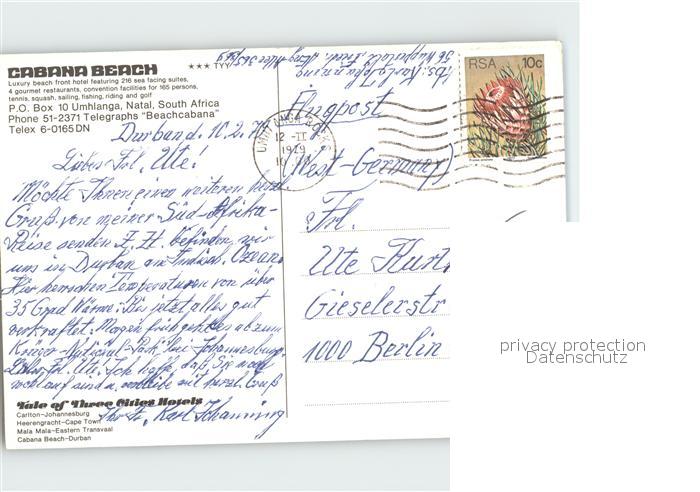 CABANA BEACH ★★★ TYYY
Luxury beach front hotel featuring 216 sea facing suites,
4 gourmet restaurants, convention facilities for 165 persons,
tennis, squash, sailing, fishing, riding and golf
P.O. Box 10 Umhlanga, Natal, South Africa
Phone 51-2371 Telegraphs "Beachcabana"
Telex 6-0165 DN
Durban d. 10.2.79
Liebes Frl. Ute!
Möchte Ihnen einen weiteren
Gruß von meiner Süd-Afrika-
Reise senden Z. Zt. befinden wir
uns in Durban am Indisch. Ozean.
Hier herrschen Temperaturen von über
35 Grad Wärme. Bis jetzt alles gut
verkraftet. Morgen früh geht es ab zum
Krüger-National-Park bei Johannesburg.
Frl. Ute. Ich hoffe, daß Sie
wohlauf sind u. verbleibe mit herzl. Gruß
Ihr Karl Johanning
Tale of Three Cities Hotels
Carlton-Johannesburg
Heerengracht-Cape Town
Mala Mala-Eastern Transvaal
Cabana Beach-Durban
Abs: Karl Johanning
56 Wuppertal
Flugpost
(West-Germany)
Frl.
Ute Kurt
Gieselerstr
1000 Berlin
RSA 10c
12 -II
1979
privacy protection
Datenschutz